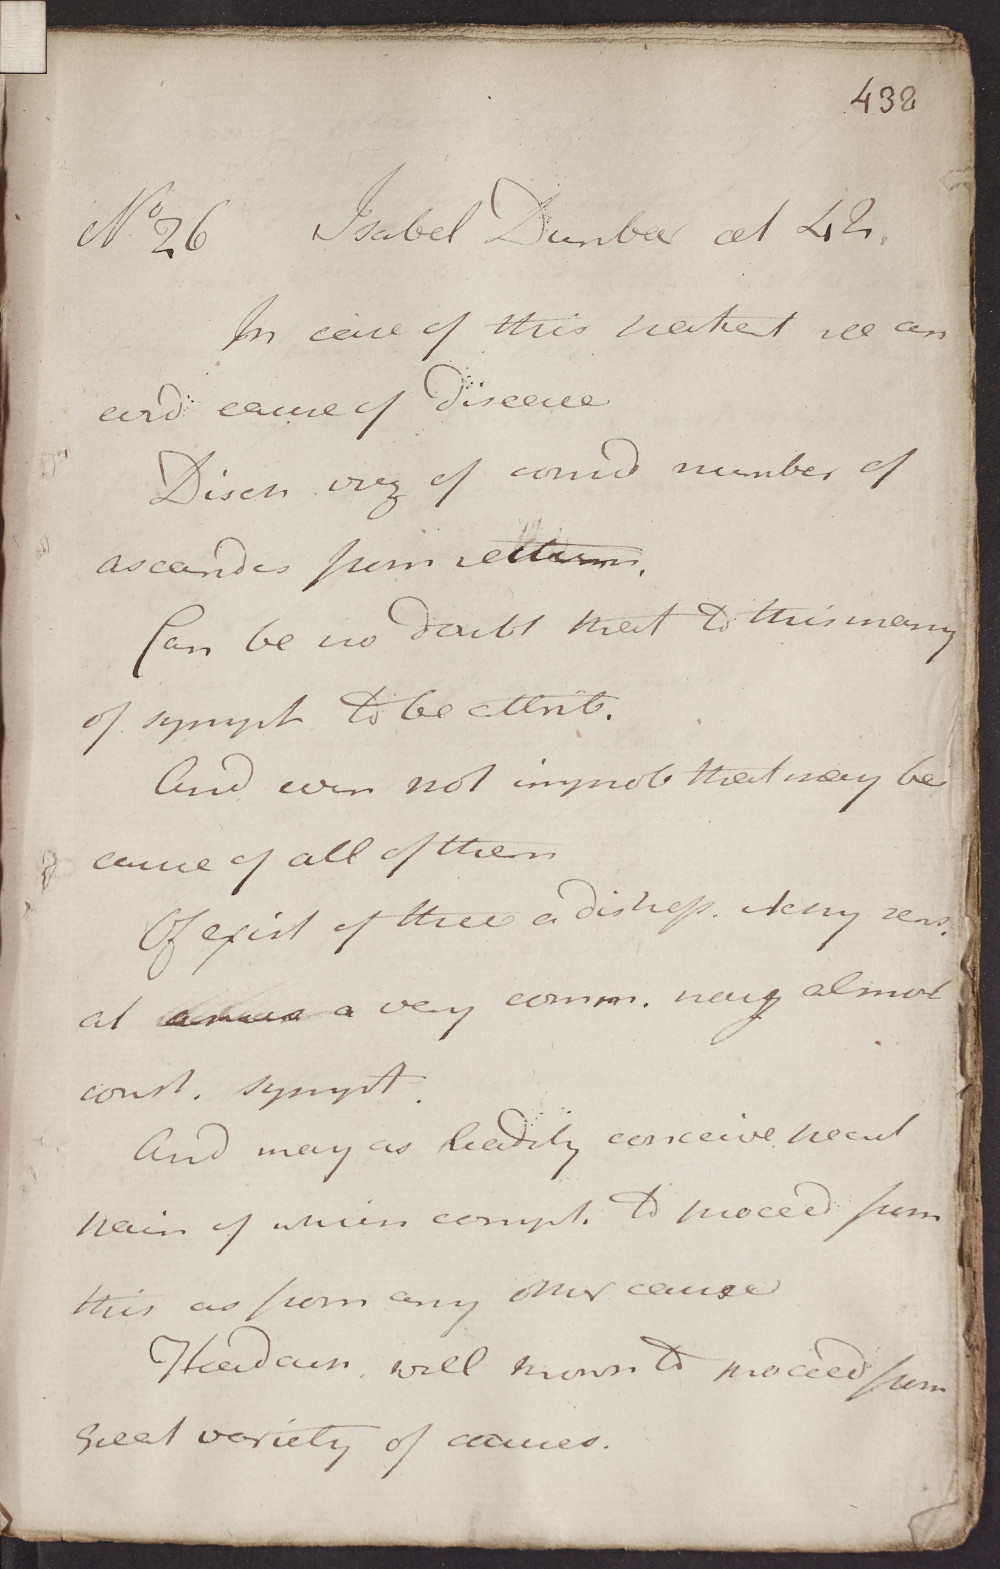 432
No 26 Isabel Dunbar æt 42.
In case of this patient we an
evid cause of disease
Disch. viz of consid number of
ascarides from rectum.
Can be no doubt that to this many
of sympt to be attrib.
And even not improb that may be
cause of all of them
Of exist of these a distress. itchy sens.
at anus a very comm. nay almost
const. sympt.
And may as readily conceive pecul
pain of which compl. to proceed from
this as from any other cause
Headach. well known to proceed from
great variety of causes.